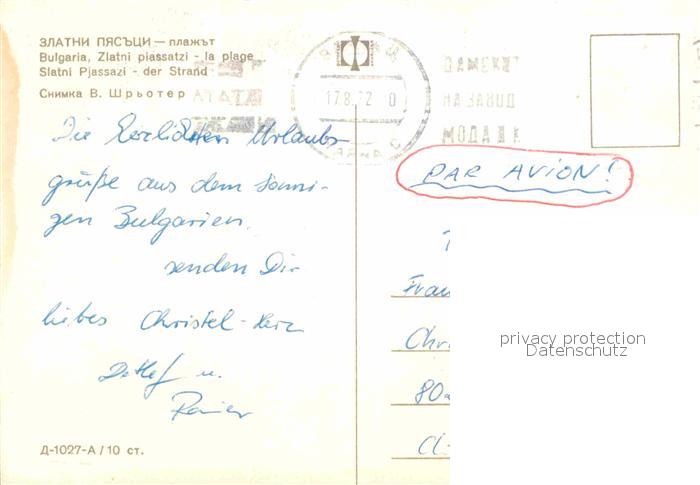 ЗЛАТНИ ПЯСЪЦИ — плажът
Bulgaria, Zlatni piassatzi - la plage
Slatni Pjassazi - der Strand
Снимка В. Шрьотер
17.8.72
ДАМСКИ
НА ЗАВОД
МОДА
Die herzlichsten Urlaubs
grüße aus dem sonni-
gen Bulgarien.
senden Dir
liebes Christel-Herz
Detlef u.
Rainer
PAR AVION!
Frau
Chri
80
privacy protection
Datenschutz
Д-1027-А / 10 ст.